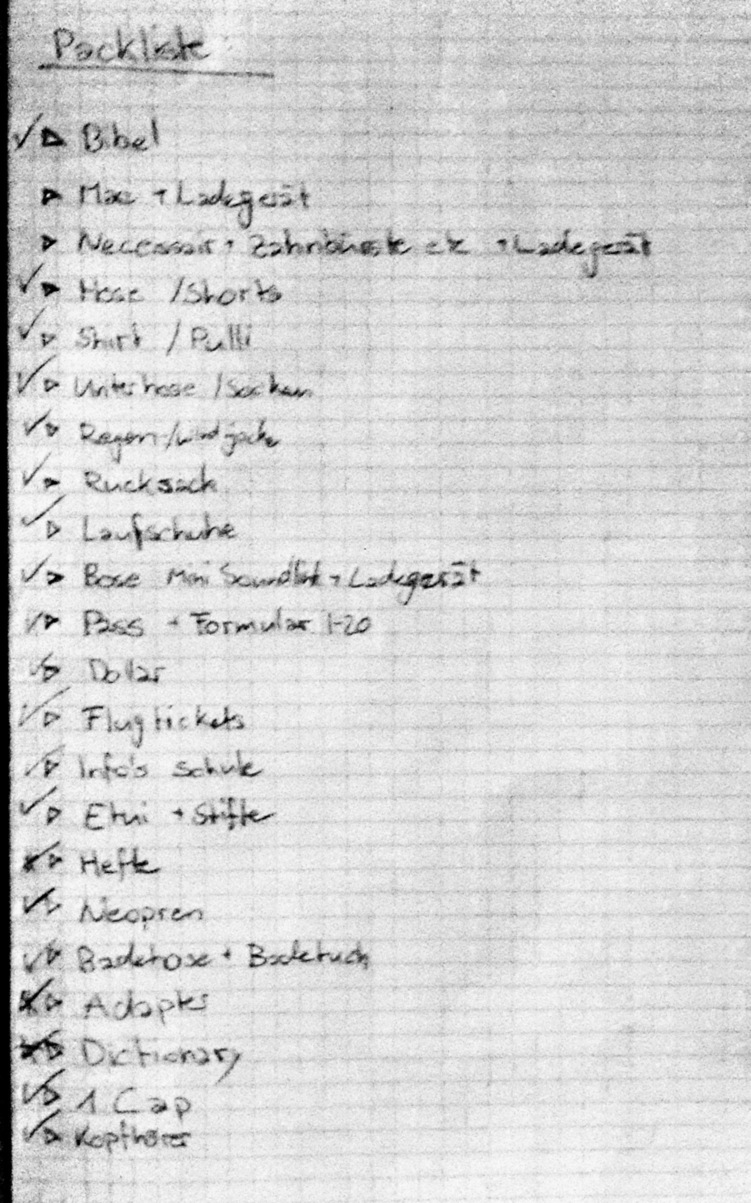 Packliste
Bibel
Mac + Ladegerät
Necessair + Zahnbürste etc + Ladegerät
Hose / Shorts
Shirt / Pulli
Unterhose / Socken
Regen-/Windjacke
Rucksack
Laufschuhe
Bose Mini Soundlink + Ladegerät
Pass + Formular I-20
Dollar
Flugtickets
Info's Schule
Etui + Stifte
Hefte
Neopren
Badehose + Badetuch
Adapter
Dictionary
1 Cap
Kopfhörer